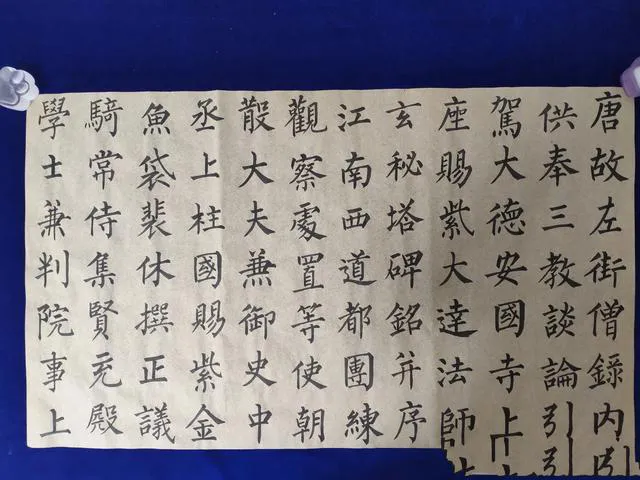 唐故左街僧錄内
供奉三教談論引
駕大德安國寺上
座賜紫大達法師
玄秘塔碑銘并序
江南西道都團練
觀察處置等使朝
散大夫兼御史中
丞上柱國賜紫金
魚袋裴休撰正議
騎常侍集賢充殿
學士兼判院事上